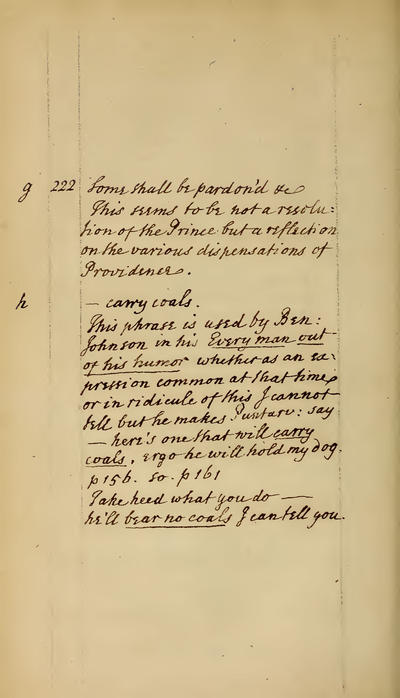 g 222 Some shall be pardon'd &c
This seems to be not a resolu:
tion of the Prince but a reflection
on the various dispensations of
Providence.
h — carry coals.
This phrase is used by Ben:
Johnson in his Every man out
of his humor whether as an ex-
pression common at that time
or in ridicule of this I cannot
tell but he makes Puntarv: say
— here's one that will carry
coals, ergo he will hold my dog.
p 156. so. p 161
Take heed what you do —
he'll bear no coals I can tell you.